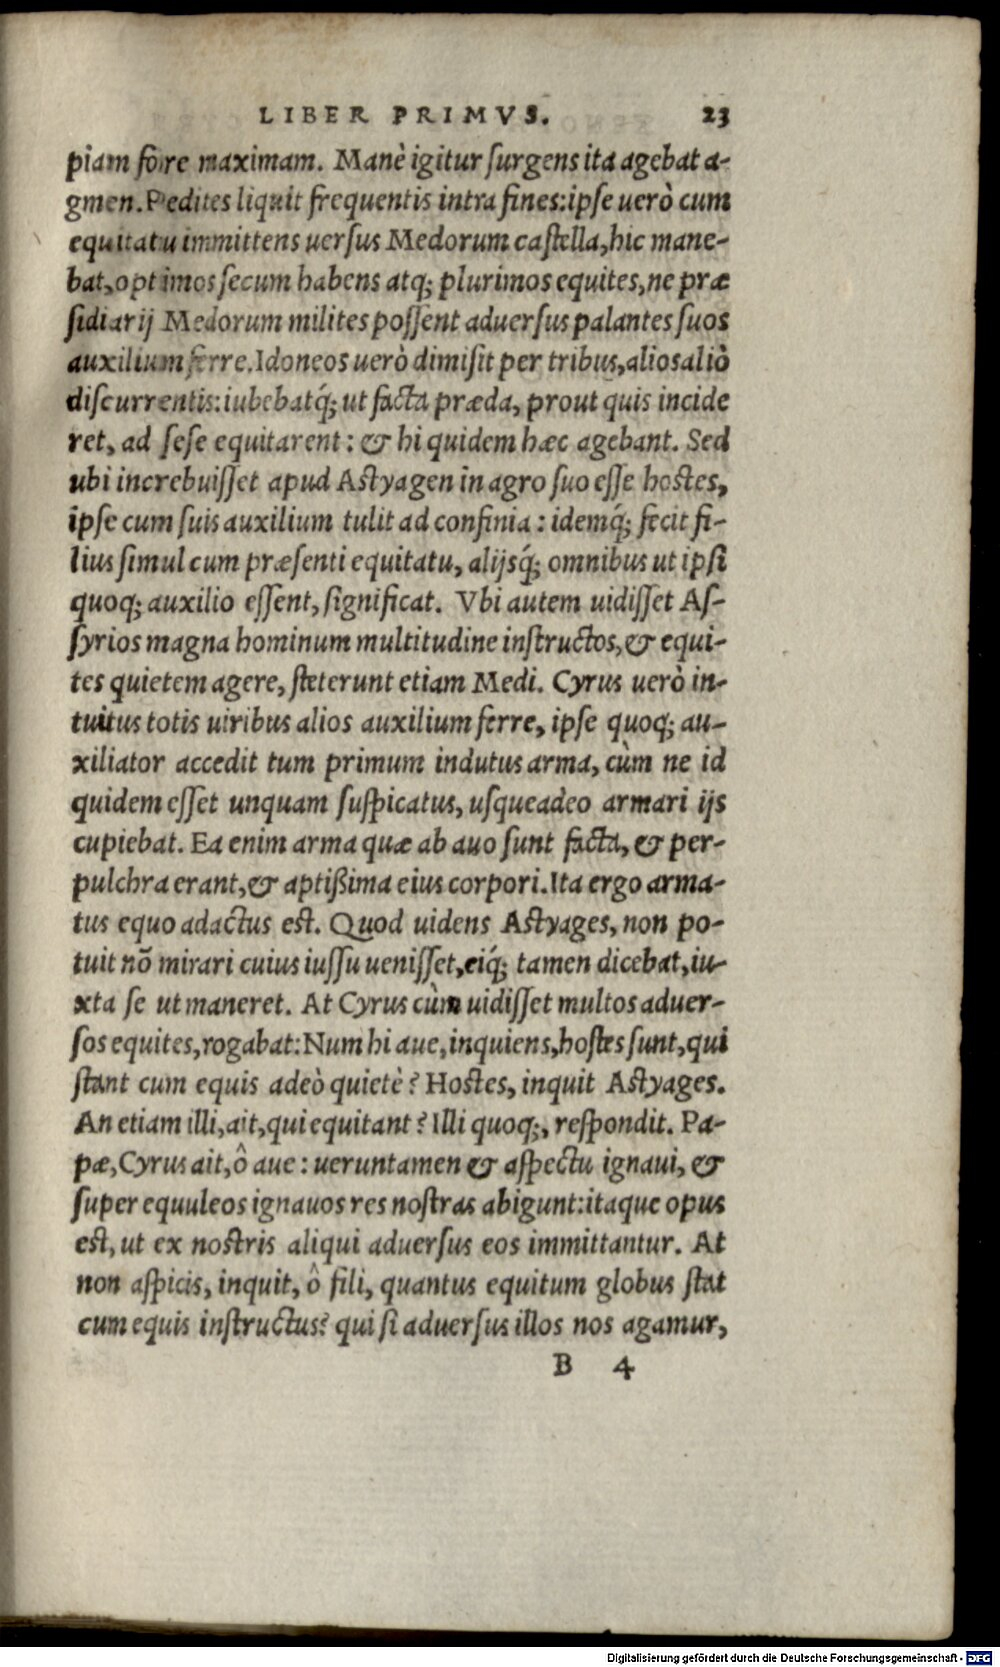 LIBER PRIMVS. 23
piam fore maximam. Manè igitur ſurgens ita agebat a-
gmen. Pedites liquit frequentis intra fines: ipſe uerò cum
equitatu immittens uerſus Medorum caſtella, hic mane-
bat, optimos ſecum habens atq; plurimos equites, ne præ
ſidiarij Medorum milites poſſent aduerſus palantes ſuos
auxilium ferre. Idoneos uerò dimiſit per tribus, alios aliò
diſcurrentis: iubebatq́; ut facta præda, prout quis incide
ret, ad ſeſe equitarent: & hi quidem hæc agebant. Sed
ubi increbuiſſet apud Aſtyagen in agro ſuo eſſe hoſtes,
ipſe cum ſuis auxilium tulit ad confinia: idemq́; fecit fi-
lius ſimul cum præſenti equitatu, alijsq́; omnibus ut ipſi
quoq; auxilio eſſent, ſignificat. Vbi autem uidiſſet Aſ-
ſyrios magna hominum multitudine inſtructos, & equi-
tes quietem agere, ſteterunt etiam Medi. Cyrus uerò in-
tuitus totis uiribus alios auxilium ferre, ipſe quoq; au-
xiliator accedit tum primum indutus arma, cùm ne id
quidem eſſet unquam ſuſpicatus, uſqueadeo armari ijs
cupiebat. Ea enim arma quæ ab auo ſunt facta, & per-
pulchra erant, & aptißima eius corpori. Ita ergo arma-
tus equo adactus eſt. Quod uidens Aſtyages, non po-
tuit nō mirari cuius iuſſu ueniſſet, eiq́; tamen dicebat, iu-
xta ſe ut maneret. At Cyrus cùm uidiſſet multos aduer-
ſos equites, rogabat: Num hi aue, inquiens, hoſtes ſunt, qui
ſtant cum equis adeò quietè? Hoſtes, inquit Aſtyages.
An etiam illi, ait, qui equitant? Illi quoq;, reſpondit. Pa-
pæ, Cyrus ait, ô aue: ueruntamen & aſpectu ignaui, &
ſuper equuleos ignauos res noſtras abigunt: itaque opus
eſt, ut ex noſtris aliqui aduerſus eos immittantur. At
non aſpicis, inquit, ô fili, quantus equitum globus ſtat
cum equis inſtructus? qui ſi aduerſus illos nos agamur,
B 4
Digitalisierung gefördert durch die Deutsche Forschungsgemeinschaft - DFG